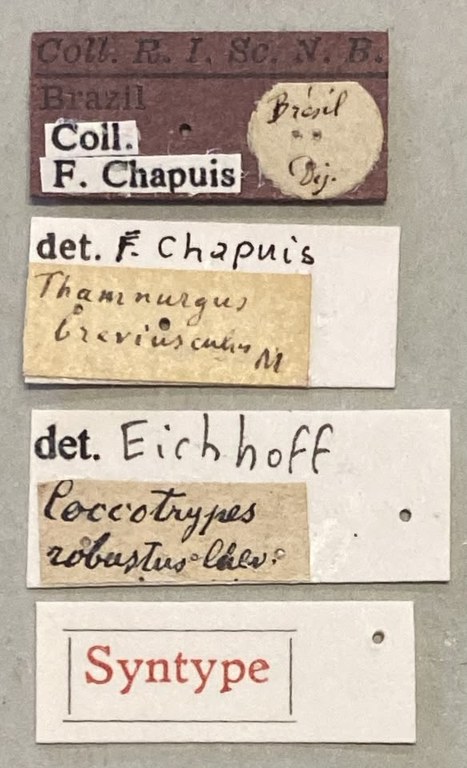 Coll. R. I. Sc. N. B.
Brazil
Coll.
F. Chapuis
Brésil
Dej.
det. F. Chapuis
Thamnurgus
breviusculus M
det. Eichhoff
Coccotrypes
robustus
Syntype